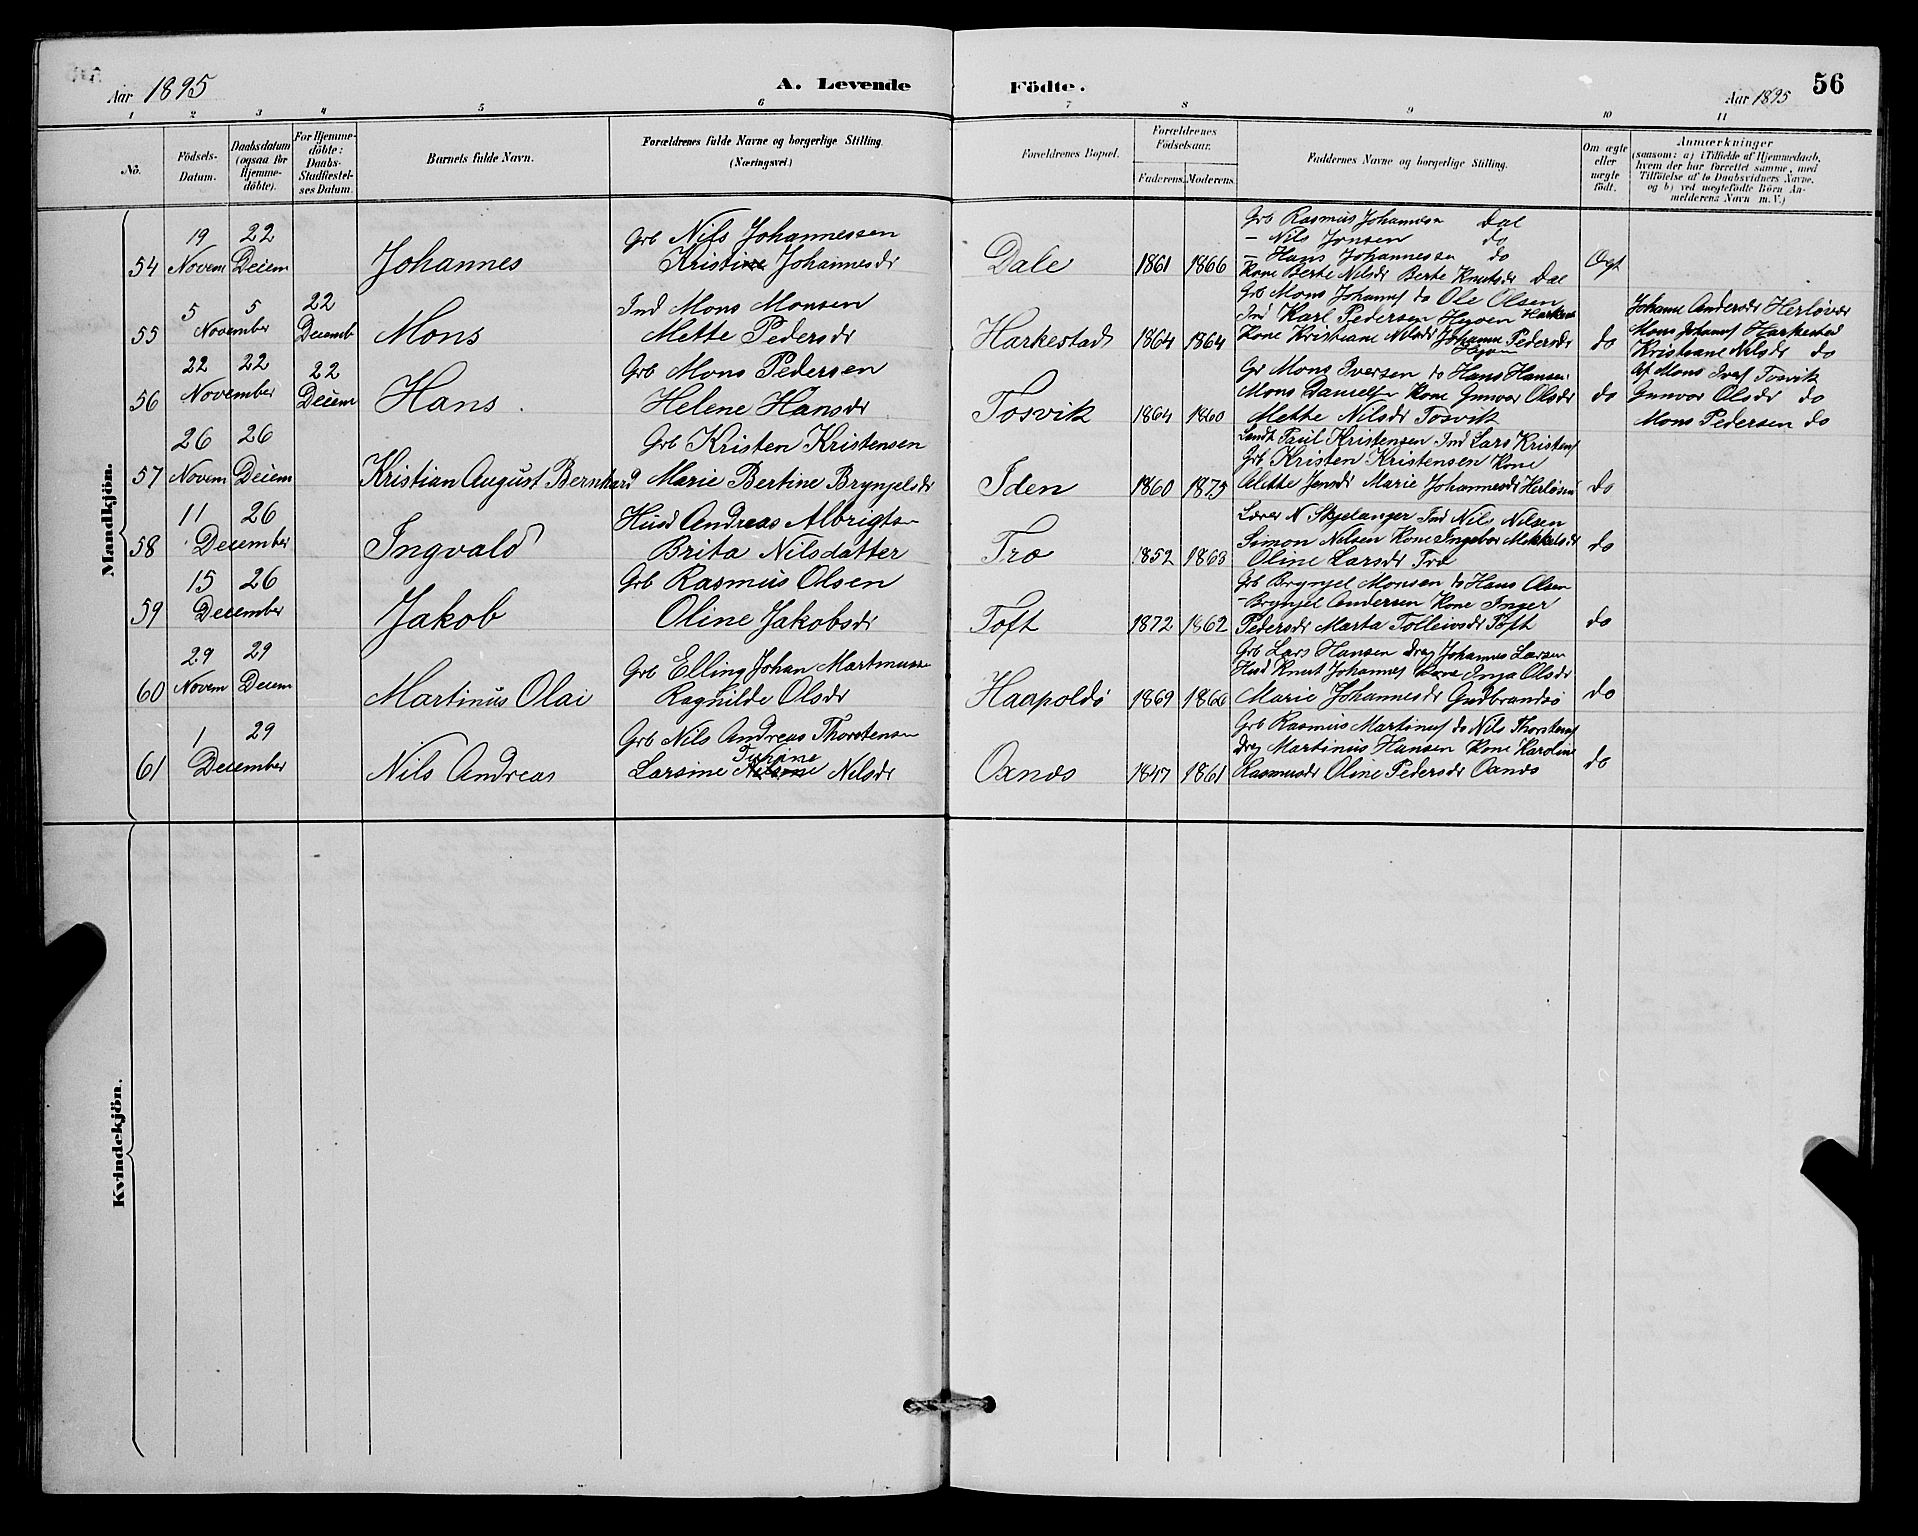 Aar 1895 A. Levende Födte. Aar 1895 56
1 2 3 4 5 6 7 8 9 10 11
No. Födsels-Datum. Daabsdatum (ogsaa for Hjemme-döbte). For Hjemme-döbte: Daabs-Stadfæstel-ses Datum. Barnets fulde Navn. Forældrenes fulde Navne og borgerlige Stilling. (Næringsvei) Forældrenes Bopæl. Forældrenes Födselsaar. Faderens. Moderens. Faddernes Navne og borgerlige Stilling. Om ægte eller uægte födt. Anmærkninger (saasom: a) i Tilfælde af Hjemmedaab, hvem der har forrettet samme, med Tilföielse af to Daabsvidners Navne, og b) ved uægtefödte Börn An-melderens Navn m. V.)
Mandkjön.
54 19 Novem 22 Decem Johannes Grb Nils Johannessen
Kristine Johannesdr Dale 1861 1866 Grb Rasmus Johannesen Dal
- Nils Jonsen do
- Hans Johannessen do
Kone Berte Nilsdr Berte Knutsdr Dal Ægt
55 5 5 November 22 Decemb Mons Ind Mons Monsen
Mette Pedersdr Harkestad 1864 1864 Grb Mons Johannes do Ole Olsen
Ind Karl Pedersen Hegoen Harkest
Kone Kristiane Nilsdr Johanne Pedersdr
do Johanne Andersdr Herløvær
Mons Johannes Harkestad
Kristiane Nilsdr do
56 22 22 November 22 Decem Hans Grb Mons Pedersen
Helene Hansdr Tosvik 1864 1860 Gr Mons Iversen do Hans Hansen
Mons Danielsen Kone Gunvor Olsdr
Mette Nilsdr Tosvik do Af Mons Tosvik
Gunvor Olsdr do
Mons Pedersen do
57 26 Novem 26 Decem Kristian August Bernhard Grb Kristen Kristensen
Marie Bertine Brynjelsdr Iden 1860 1875 Landh Paul Kristensen Ind Lars Kristens
Grb Kristen Kristensen Kone
Alette Jensdr Marie Johannesdr do
58 11 26 December Ingvald Husd Andreas Albrigtsen
Brita Nilsdatter Tro 1852 1863 Lærer N Skjelanger Ind Nils Nilsen
Simon Nilsen Kone Ingebor Mikkelsdr
Oline Larsdr Tro do
59 15 26 December Jakob Grb Rasmus Olsen
Oline Jakobsdr Toft 1872 1862 Grb Brynjel Monsen do Hans Olsen
- Brynjel Andersen Kone Inger
Pedersdr Marta Tolleivsdr Toft do
60 29 Novem 29 Decem Martinus Olai Grb Elling Johan Martinussen
Ragnilde Olsdr Haapoldø 1869 1866 Grb Lars Hansen Drg Johannes Larsen
Husd Knut Johannes Kone Inga Olsdr
Marie Johannesdr Gudbrandsø do
61 1 29 December Nils Andreas Grb Nils Andreas Thorstensen
Larsine Nilsdr Oxnæs 1847 1861 Grb Rasmus Martinus do Nils Thorstens
Drg Martinus Hansen Kone Karoline
Rasmusdr Oline Pedersdr Oxnæs do
Kvindekjön.